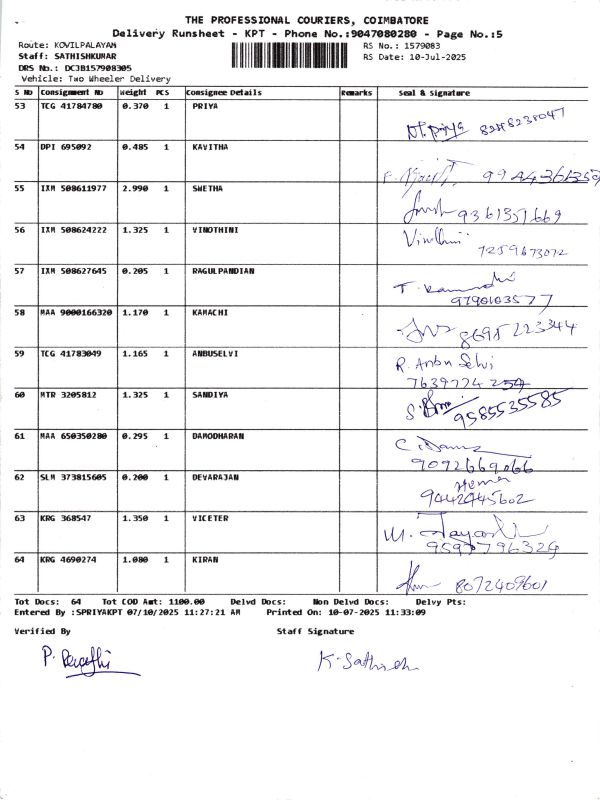 THE PROFESSIONAL COURIERS, COIMBATORE
Delivery Runsheet - KPT - Phone No.:9047080280 - Page No.:5
Route: KOVILPALAYAM RS No.: 1579083
Staff: SATHISHKUMAR RS Date: 10-Jul-2025
DRS No.: DCJB157908305
Vehicle: Two Wheeler Delivery
S NO Consignment NO Weight PCS Consignee Details Remarks Seal & Signature
53 TCG 41784780 0.370 1 PRIYA
54 DPI 695092 0.485 1 KAVITHA
55 IXM 508611977 2.990 1 SWETHA
9361351669
56 IXM 508624222 1.325 1 VINOTHINI
7259673072
57 IXM 508627645 0.205 1 RAGULPANDIAN
9790103577
58 MAA 9000166320 1.170 1 KAMACHI
8695223344
59 TCG 41783049 1.165 1 ANBUSELVI R. Anbu Selvi
7639774 254
60 MTR 3205812 1.325 1 SANDIYA
9585535585
61 MAA 650350280 0.295 1 DAMODHARAN
9092669066
62 SLM 373815605 0.200 1 DEVARAJAN Hema
9042945602
63 KRG 368547 1.350 1 VICETER
64 KRG 4690274 1.080 1 KIRAN 8072409601
Tot Docs: 64 Tot COD Amt: 1100.00 Delvd Docs: Non Delvd Docs: Delvy Pts:
Entered By :SPRIYAKPT 07/10/2025 11:27:21 AM Printed On: 10-07-2025 11:33:09
Verified By Staff Signature
K. Sathish